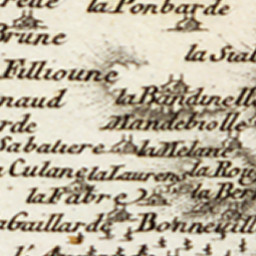 la Ponbarde
Brune
la Sial
Fillioune
naud la Bandinell
rde Mandebiolle
Sabatiere la Melane
Culane la Laurens la Rou
la Fabre la Ber
aGaillarde Bonneuill